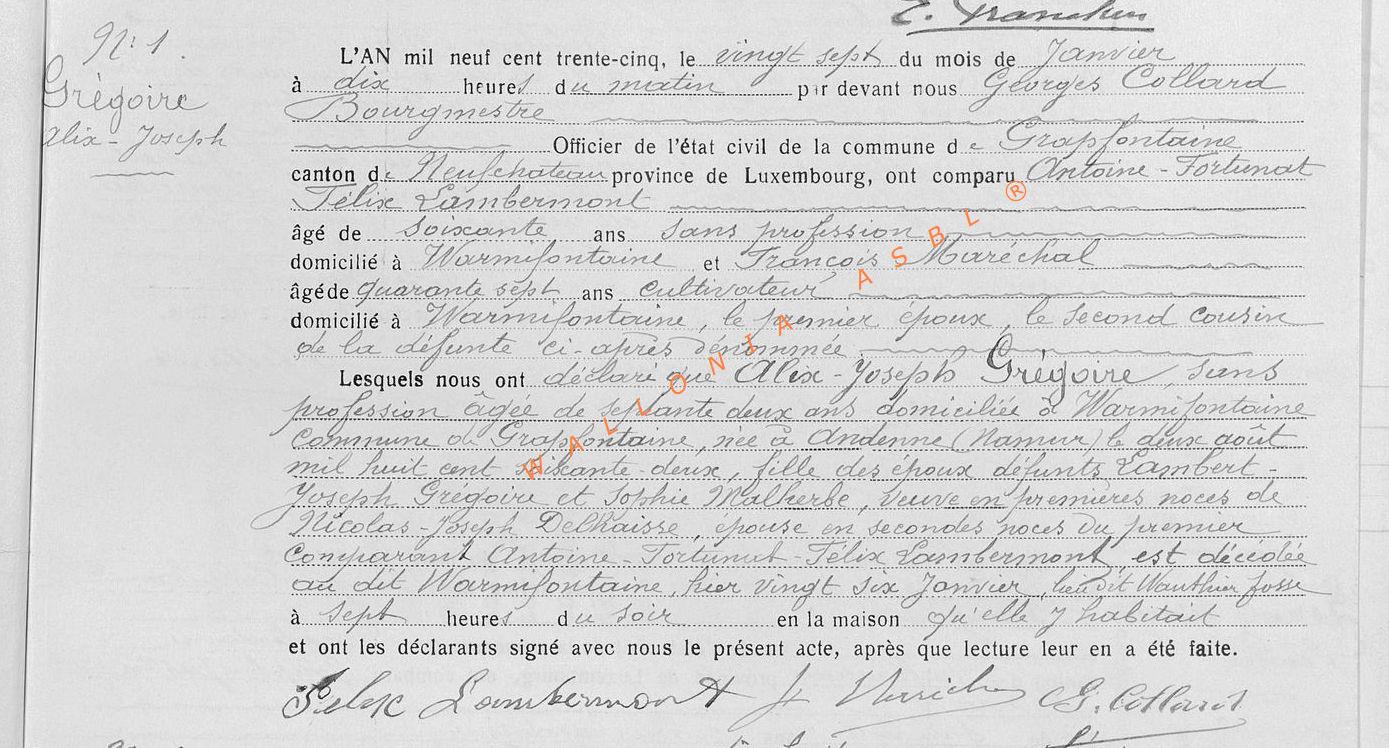 E. Franckin
N°: 1.
Grégoire
Alix-Joseph
L'AN mil neuf cent trente-cinq, le vingt sept du mois de Janvier
à dix heures du matin par devant nous Georges Collard
Bourgmestre
Officier de l'état civil de la commune de Grapfontaine
canton de Neufchâteau province de Luxembourg, ont comparu Antoine-Fortunat
Félix Lambermont
âgé de soixante ans sans profession
domicilié à Warmifontaine et François Maréchal
âgé de quarante sept ans cultivateur
domicilié à Warmifontaine, le premier époux, le second cousin
de la défunte ci-après dénommée
Lesquels nous ont déclaré que Alix-Joseph Grégoire, sans
profession âgée de septante deux ans domiciliée à Warmifontaine
commune de Grapfontaine, née à Andenne (Namur) le deux août
mil huit cent soixante-deux, fille des époux défunts Lambert-
Joseph Grégoire et Sophie Malherbe, veuve en premières noces de
Nicolas-Joseph Delhaisse, épouse en secondes noces du premier
comparant Antoine-Fortunat-Félix Lambermont, est décédée
au dit Warmifontaine, hier vingt six Janvier, lieu dit Wauthier fosse
à sept heures du soir en la maison qu'elle y habitait
et ont les déclarants signé avec nous le présent acte, après que lecture leur en a été faite.
Felix Lambermont G. Collard
WALLONIA ASBL ®